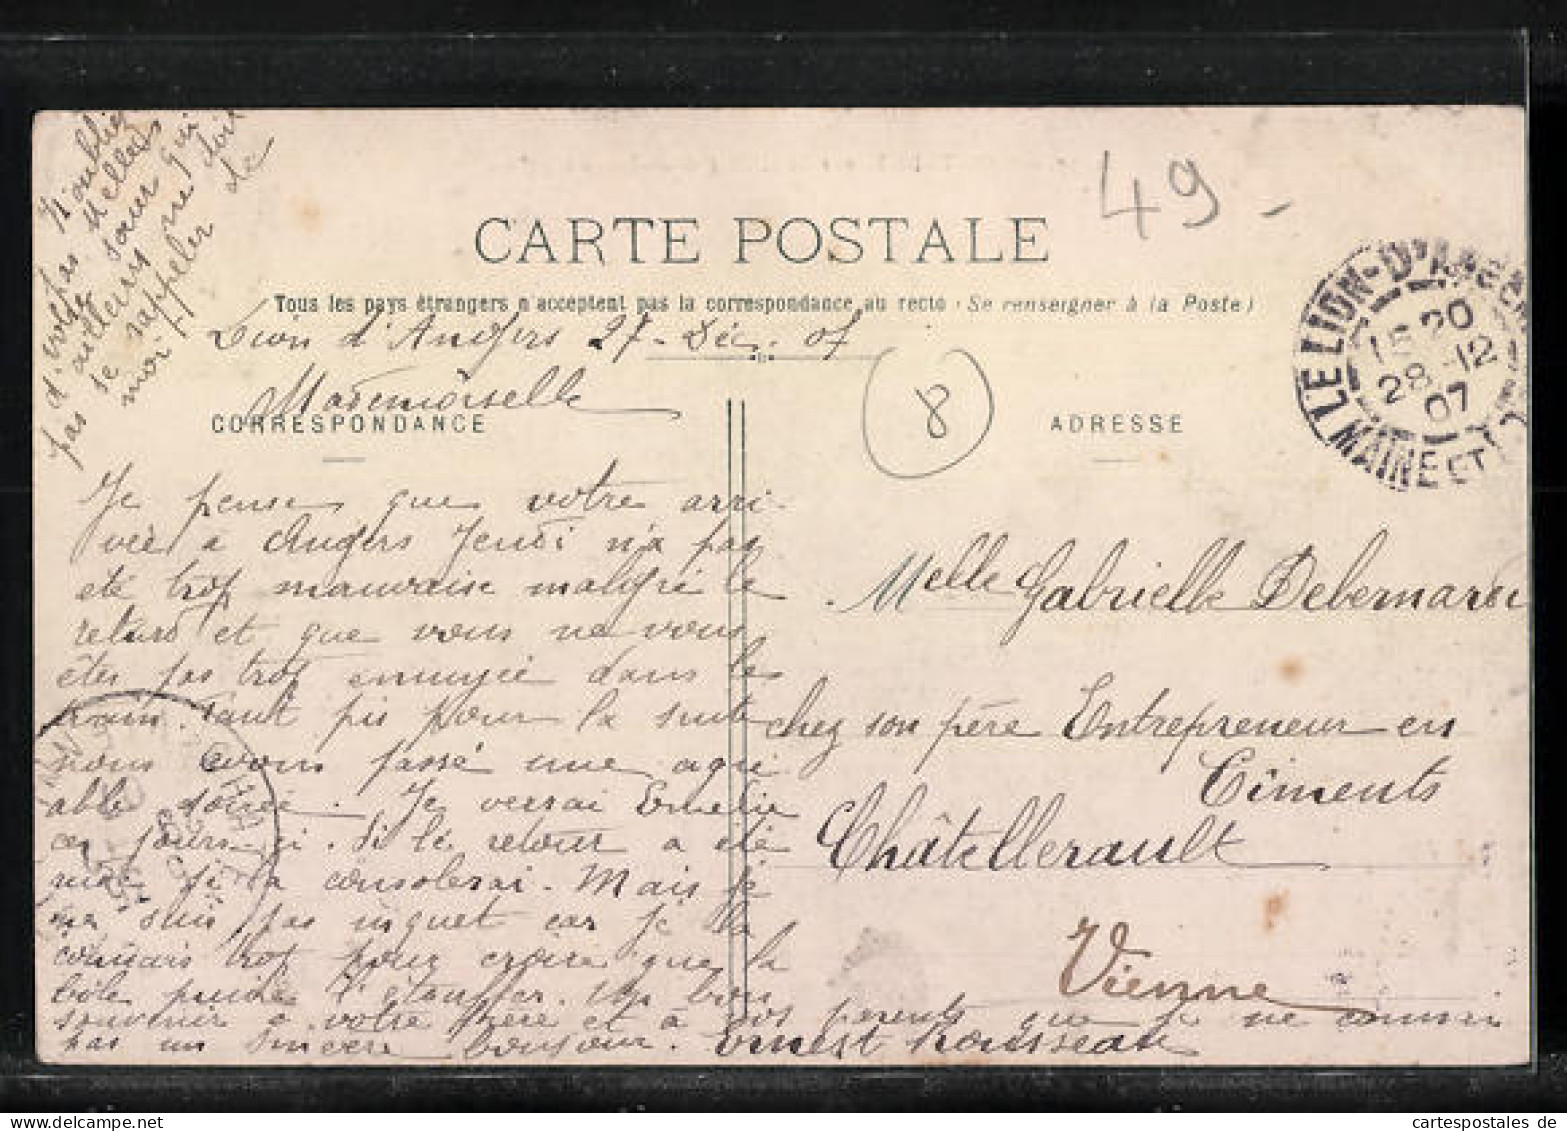 N'oubliez
pas Melle
votre sœur qui
d'ailleurs ne doit
pas se rappeler de
moi
49 -
CARTE POSTALE
Tous les pays étrangers n'acceptent pas la correspondance au recto (Se renseigner à la Poste)
LE LION-D'ANGERS
15 20
28 -12
07
MAINE ET
Lion d'Angers 27 - Déc. 07
Mademoiselle
8
CORRESPONDANCE
ADRESSE
Je pense que votre arri-
vée à Angers Jeudi n'a pas
été trop mauvaise malgré le
retard et que vous ne vous
êtes pas trop ennuyée dans le
train. Tant pis pour la suite
nous avons passé une agré
able soirée. Je verrai Emélie
ces jours-ci. Si le retour a été
mal je la consolerai. Mais je
ne suis pas inquet car je la
connais trop pour croire que la
bile puisse l'étouffer. Un bon
souvenir a votre frère et à vos parents que je ne connais
pas un sincère bonjour. Ernest Rousseau
Melle Gabrielle Debemardi
chez son père Entrepreneur en
Ciments
Châtellerault
Vienne
cartespostales.de